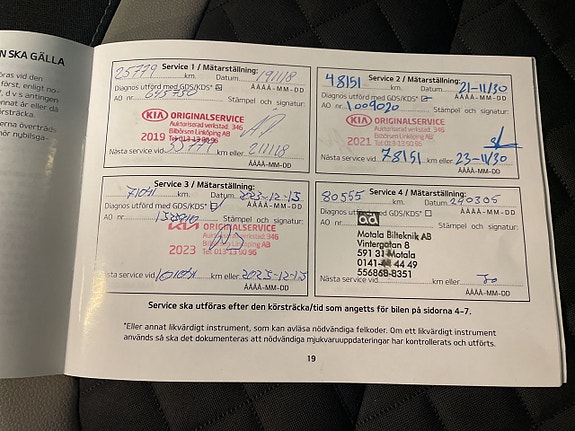 N SKA GÄLLA
ras vid den
först, enligt no-
", d v s antingen
annat år eller då
körsträcka.
erna överträds-
hör nybilsga-
Service 1 / Mätarställning:
25779 km. Datum 191118
Diagnos utförd med GDS/KDS* ÅÅÅÅ-MM-DD
AO nr 645750 Stämpel och signatur:
KIA ORIGINALSERVICE
Auktoriserad verkstad: 346
2019 Bilbörsen Linköping AB
Tel: 013-13 90 96
Nästa service vid 55779 km eller 211118
ÅÅÅÅ-MM-DD
Service 2 / Mätarställning:
48151 km. Datum 21-11/30
Diagnos utförd med GDS/KDS* ÅÅÅÅ-MM-DD
AO nr 1009020 Stämpel och signatur:
KIA ORIGINALSERVICE
Auktoriserad verkstad: 346
2021 Bilbörsen Linköping AB
Tel: 013-13 90 96
Nästa service vid 78151 km eller 23-11/30
ÅÅÅÅ-MM-DD
Service 3 / Mätarställning:
71041 km. Datum 2023-12-13
Diagnos utförd med GDS/KDS* ÅÅÅÅ-MM-DD
AO nr Stämpel och signatur:
KIA ORIGINALSERVICE
Auktoriserad verkstad: 346
2023 Linköping AB
Nästa service vid 101041 km eller 2025-12-13
ÅÅÅÅ-MM-DD
Service 4 / Mätarställning:
80555 km. Datum 240305
Diagnos utförd med GDS/KDS* ÅÅÅÅ-MM-DD
AO nr ad Stämpel och signatur:
Motala Bilteknik AB
Vintergatan 8
591 31 Motala
0141-44 49
556868-8351
Nästa service vid km eller
ÅÅÅÅ-MM-DD
Service ska utföras efter den körsträcka/tid som angetts för bilen på sidorna 4-7.
*Eller annat likvärdigt instrument, som kan avläsa nödvändiga felkoder. Om ett likvärdigt instrument
används så ska det dokumenteras att nödvändiga mjukvaruuppdateringar har kontrollerats och utförts.
19